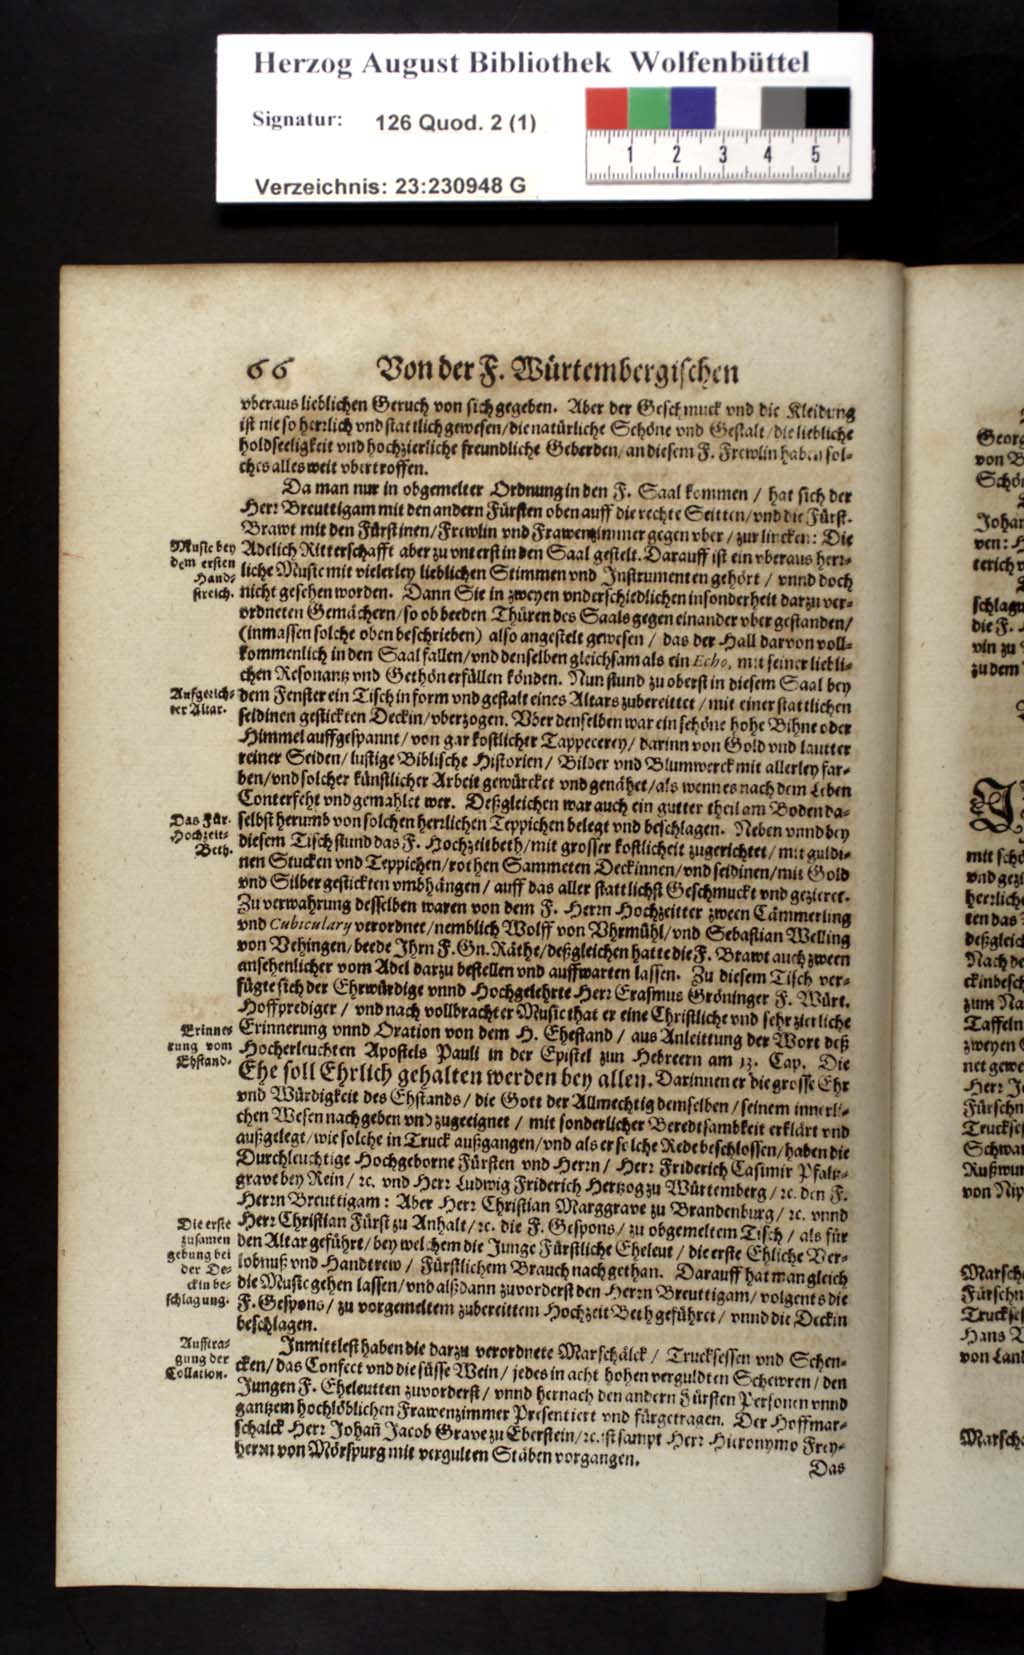 Herzog August Bibliothek Wolfenbüttel
Signatur: 126 Quod. 2 (1)
1 2 3 4 5
Verzeichnis: 23:230948 G
66 Von der F. Würtembergischen
vberaus lieblichen Geruch von sich gegeben. Aber der Geschmuck vnd die Kleidung
ist nie so herrlich vnd stattlich gewesen/ die natürliche Schöne vnd Gestalt/ die liebliche
holdseeligkeit vnd hochzierliche freundliche Geberden/ an diesem F. Frewlin haben sol-
ches alles weit vbertroffen.
Da man nur in obgemelter Ordnung in den F. Saal kommen / hat sich der
Herr Breuttigam mit den andern Fürsten oben auff die rechte Seitten/ vnd die Fürst.
Brawt mit den Fürstinen/ Frewlin vnd Frawenzimmer gegen vber/ zur lincken: Die
Adelich Ritterschafft aber zu vnterst in den Saal gestelt. Darauff ist ein vberaus herr-
liche Music mit vielerley lieblichen Stimmen vnd Instrumenten gehört / vnnd doch
nicht gesehen worden. Dann Sie in zweyen vnderschiedlichen insonderheit darzu ver-
ordneten Gemächern/ so ob beeden Thüren des Saals gegen einander vber gestanden/
(inmassen solche oben beschrieben) also angestelt gewesen / das der Hall darvon voll-
kommenlich in den Saal fallen/ vnd denselben gleichsam als ein Echo, mit seiner liebli-
chen Resonantz vnd Gethön erfüllen könden. Nun stund zu oberst in diesem Saal bey
dem Fenster ein Tisch in form vnd gestalt eines Altars zubereittet / mit einer stattlichen
seidinen gestickten Deckin/ vberzogen. Vber denselben war ein schöne hohe Bihne oder
Himmel auffgespannt/ von gar kostlicher Tappecerey/ darinn von Gold vnd lautter
reiner Seiden/ lustige Biblische Historien/ Bilder vnd Blumwerck mit allerley far-
ben/ vnd solcher künstlicher Arbeit gewürcket vnd genähet/ als wenn es nach dem Leben
Conterfeht vnd gemahlet wer. Deßgleichen war auch ein gutter theil am Boden da-
selbst herumb von solchen herrlichen Teppichen belegt vnd beschlagen. Neben vnnd bey
diesem Tisch stund das F. Hochzeitbeth/ mit grosser kostlicheit zugerichtet/ mit guldi-
nen Stucken vnd Teppichen/ rothen Sammeten Deckinnen/ vnd seidinen/ mit Gold
vnd Silber gestickten vmbhängen / auff das aller stattlichst Geschmuckt vnd gezieret.
Zu verwahrung desselben waren von dem F. Herrn Hochzeitter zween Cämmerling
vnd Cubiculary verordnet/ nemblich Wolff von Vhrmühl/ vnd Sebastian Welling
von Vehingen/ beede Ihrn F. Gn. Räthe/ deßgleichen hatte die F. Brawt auch zween
ansehenlicher vom Adel darzu bestellen vnd auffwarten lassen. Zu diesem Tisch ver-
fügte sich der Ehrwürdige vnnd Hochgelehrte Herr Erasmus Gröninger F. Würt.
Hoffprediger / vnd nach vollbrachter Music that er eine Christliche vnd sehr zierliche
Erinnerung vnnd Oration von dem H. Ehestand / aus Anleittung der Wort deß
Hocherleuchten Apostels Pauli in der Epistel zun Hebreern am 13. Cap. Die
Ehe soll Ehrlich gehalten werden bey allen. Darinnen er die grosse Ehr
vnd Würdigkeit des Ehstands/ die Gott der Allmechtig demselben / seinem innerli-
chen Wesen nachgeben vnd zugeeignet / mit sonderlicher Beredtsambkeit erklärt vnd
außgelegt/ wie solche in Truck außgangen/ vnd als er solche Rede beschlossen/ haben die
Durchleuchtige Hochgeborne Fürsten vnd Herrn / Herr Friderich Casimir Pfaltz-
grave bey Rein / ꝛc. vnd Herr Ludwig Friderich Hertzog zu Würtemberg / ꝛc. den F.
Herrn Breuttigam: Aber Herr Christian Marggrave zu Brandenburg / ꝛc. vnnd
Herr Christian Fürst zu Anhalt/ ꝛc. die F. Gespons/ zu obgemeltem Tisch / als für
den Altar geführt/ bey welchem die Junge Fürstliche Eheleut / die erste Ehliche Ver-
lobnuß vnd Handtrew / Fürstlichem Brauch nach gethan. Darauff hat man gleich
die Music gehen lassen/ vnd alßdann zuvorderst den Herrn Breuttigam/ volgents die
F. Gespons/ zu vorgemeltem zubereittem Hochzeit Beth geführet/ vnnd die Deckin
beschlagen.
Inmittlest haben die darzu verordnete Marschälck / Trucksessen vnd Schen-
cken/ das Confect vnd die süsse Wein / jedes in acht hohen verguldten Schewren / den
Jungen F. Eheleutten zuvorderst/ vnnd hernach den andern Fürsten Personen vnnd
gantzem hochlöblichen Frawenzimmer Presentiert vnd fürgetragen. Der Hoffmar-
schalck Herr Johañ Jacob Grave zu Eberstein/ ꝛc. ist sampt Herr Hieronymo Frey-
herrn von Mörspurg mit vergulten Stäben vorgangen.
Das
Music bey
dem ersten
Hand-
streich.
Auffgerich-
ter Altar.
Das Für.
Hochzeit-
Beth.
Erinne-
rung vom
Ehstand.
Die erste
zusamen
gebung bei
der De-
ckin be-
schlagung.
Aufftra-
gung der
Collation.
Georg
von B
Schön
Johan
ven: H
terich v
schlagu
die F.
vin zu
zu dem
mit schö
vnd gezi
herrliche
ten das
deßgleich
Nach de
ckin besch
zum Na
Taffeln
zweyen
net gewe
Herr Jo
Fürschn
Truckses
Schwar
Rußwur
von Nip
Marsch
Fürschn
Truckses
Hans
von Land
Marscha